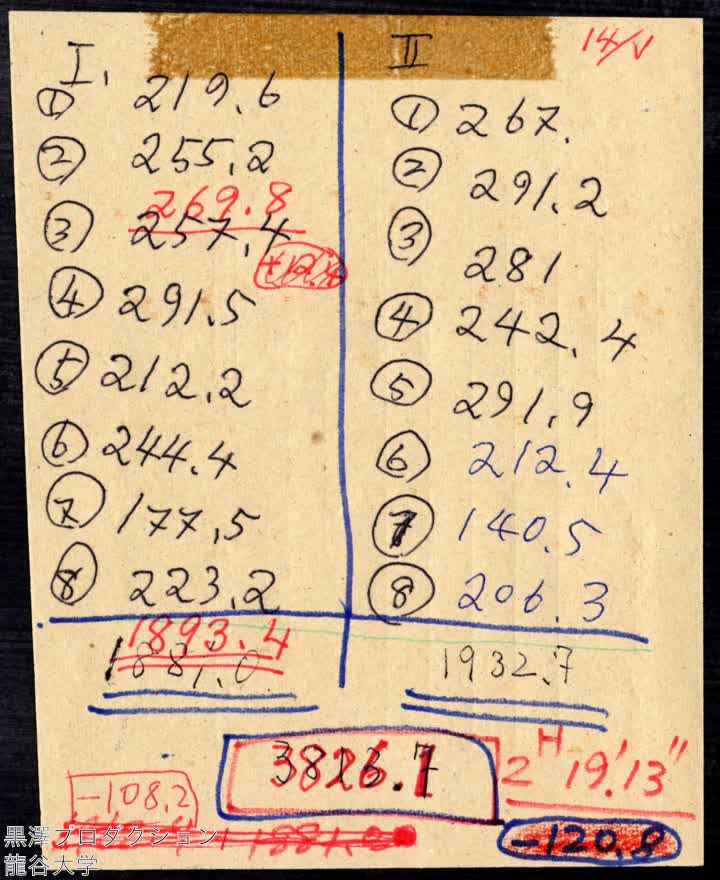 I.
① 219.6
② 255.2
269.8
③ 257.4
+12.4
④ 291.5
⑤ 212.2
⑥ 244.4
⑦ 177.5
⑧ 223.2
1893.4
1881.0
II
14/V
① 267.
② 291.2
③ 281
④ 242.4
⑤ 291.9
⑥ 212.4
⑦ 140.5
⑧ 206.3
1932.7
2H 19'13"
-108.2
-120.8
黒澤プロダクション
龍谷大学